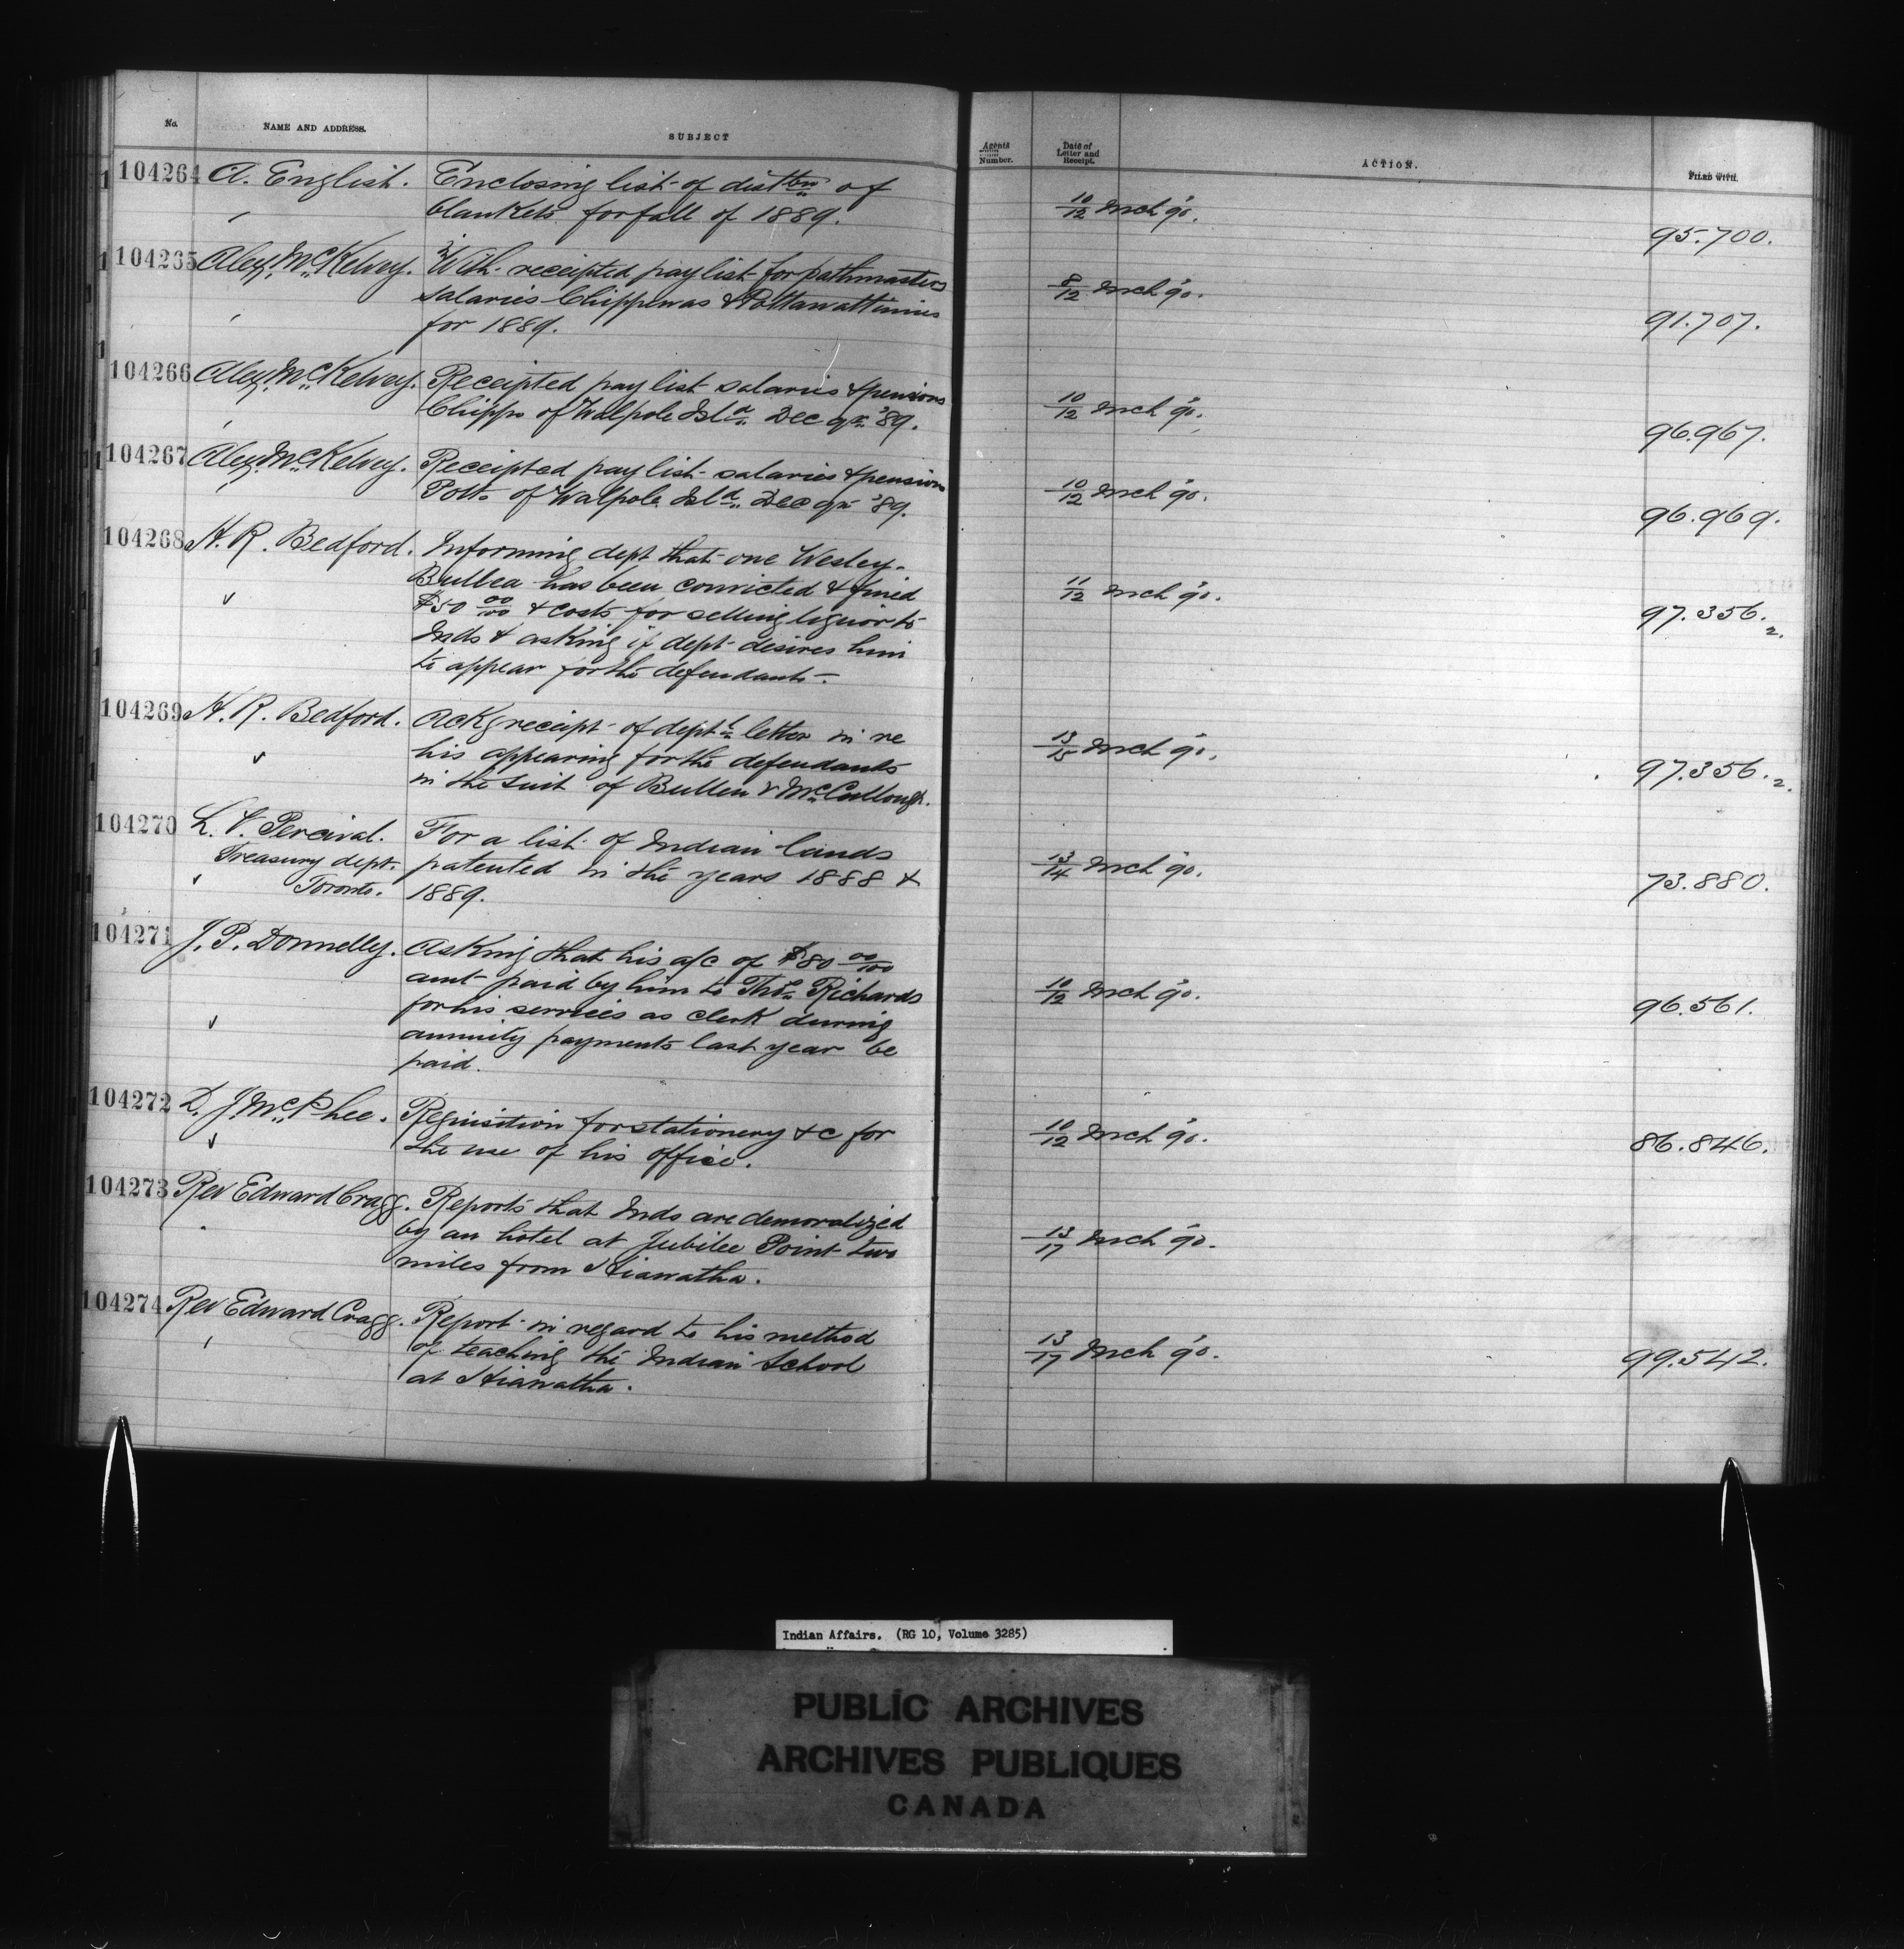 No. NAME AND ADDRESS. SUBJECT
Agents Number. Date of Letter and Receipt. ACTION. FILED WITH.
104264 A. English. Enclosing list of distbn of
blankets for fall of 1889.
10/12 Mch '90. 95.700.
104265 Alex. McKelvey. With receipted pay list for pathmasters
salaries Chippewas & Pottawattimies
for 1889.
8/12 Mch '90. 91.707.
104266 Alex. McKelvey. Receipted pay list salaries & pensions
Chipps of Walpole Isld. Dec qr. '89.
10/12 Mch '90. 96.967.
104267 Alex. McKelvey. Receipted pay list salaries & pensions
Potts of Walpole Isld. Dec qr '89.
10/12 Mch '90. 96.969.
104268 H. R. Bedford. Informing dept that one Wesley
Bullea has been convicted & fined
$50 00/100 & costs for selling liquor to
Inds & asking if dept desires him
to appear for the defendants.
11/12 Mch '90. 97.356.2.
104269 H. R. Bedford. Ackg receipt of deptl letter in re
his appearing for the defendants
in the suit of Bullen v McCullough.
13/15 Mch '90. 97.356.2.
104270 L. V. Percival.
Treasury dept.
Toronto.
For a list of Indian lands
patented in the years 1888 &
1889.
13/14 Mch '90. 73.880.
104271 J. P. Donnelly. Asking that his a/c of $80 00/100
amt paid by him to Thos. Richards
for his services as clerk during
annuity payments last year be
paid.
10/12 Mch '90. 96.561.
104272 D. J. McPhee. Requisition for stationery &c for
the use of his office.
10/12 Mch '90. 86.846.
104273 Rev Edward Cragg. Reports that Inds are demoralized
by an hotel at Jubilee Point two
miles from Hiawatha.
13/17 Mch '90.
104274 Rev Edward Cragg. Report in regard to his method
of teaching the Indian School
at Hiawatha.
13/17 Mch '90. 99.542.
Indian Affairs. (RG 10, Volume 3285)
PUBLIC ARCHIVES
ARCHIVES PUBLIQUES
CANADA